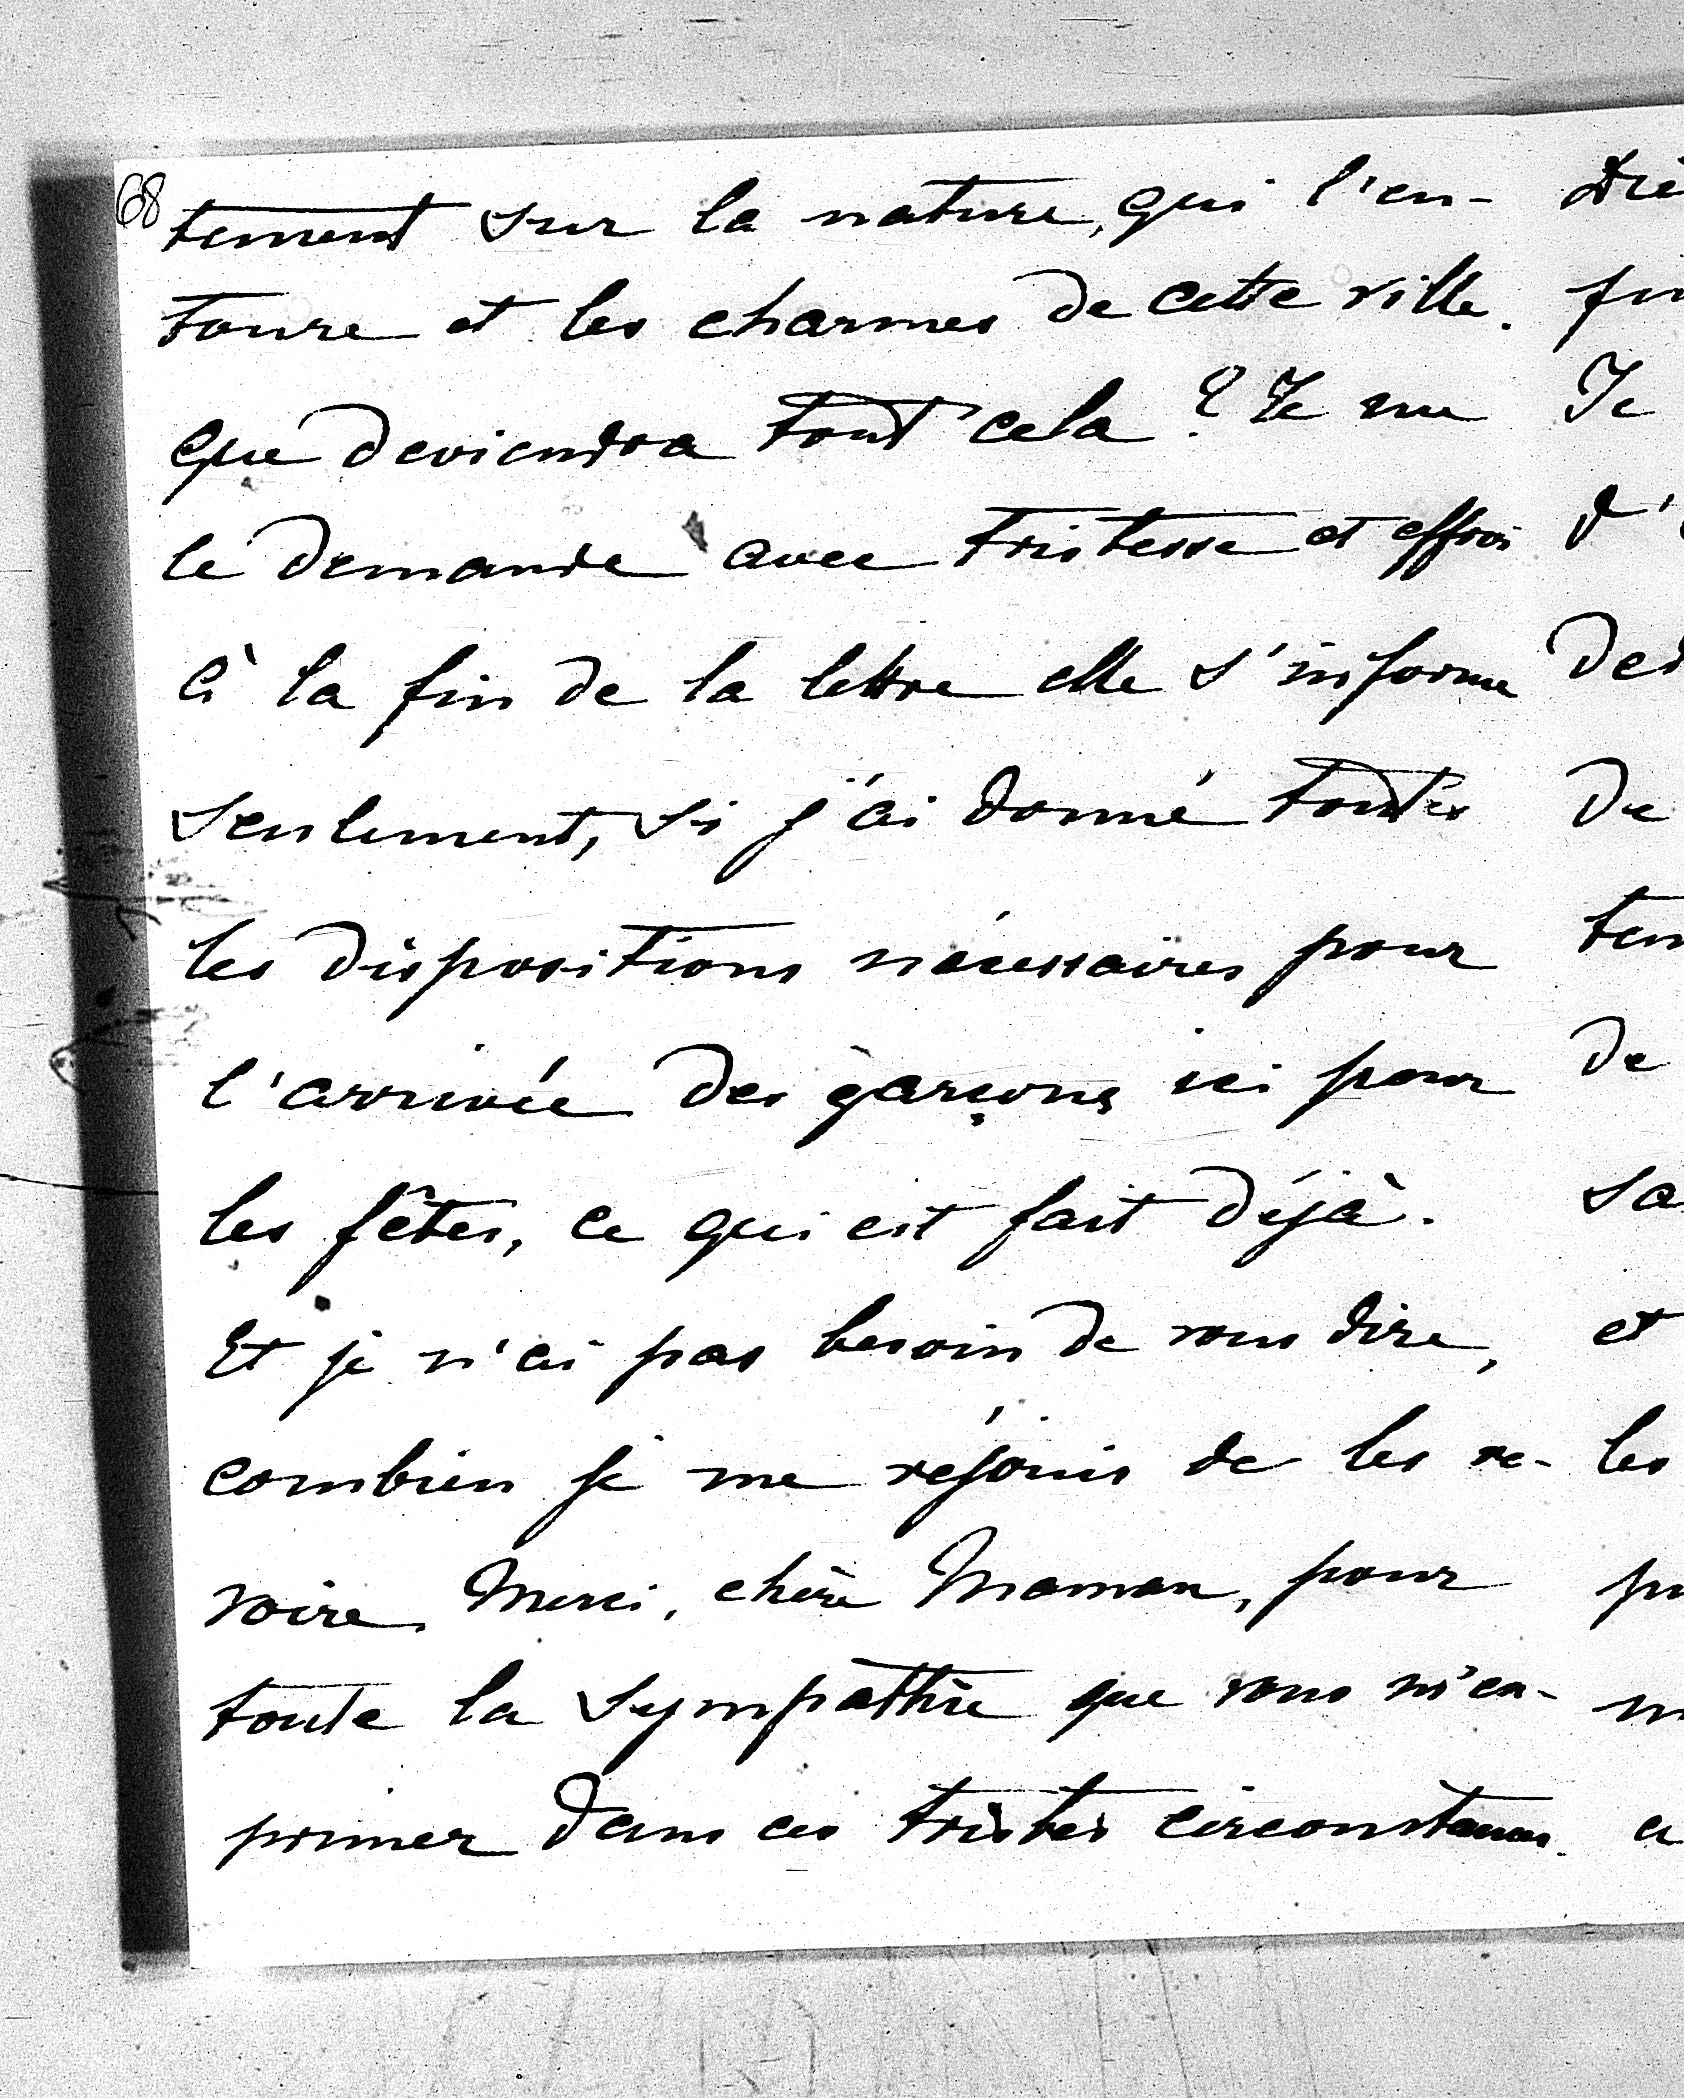 68
tement sur la nature, qui l'en-
toure et les charmes de cette ville.
que deviendra tout cela? Je me
le demande avec tristesse et effroi
à la fin de la lettre elle s'informe
seulement, si j'ai donné toutes
les dispositions nécessaires pour
l'arrivée des garçons ici pour
les fêtes, ce qui est fait déjà.
Et je n'ai pas besoin de vous dire,
combien je me réjouis de les re-
voire. Merci, chère Maman, pour
toute la sympathie que vous m'ex-
primer dans ces tristes circonstances.
Je
d'
du
de
et
les